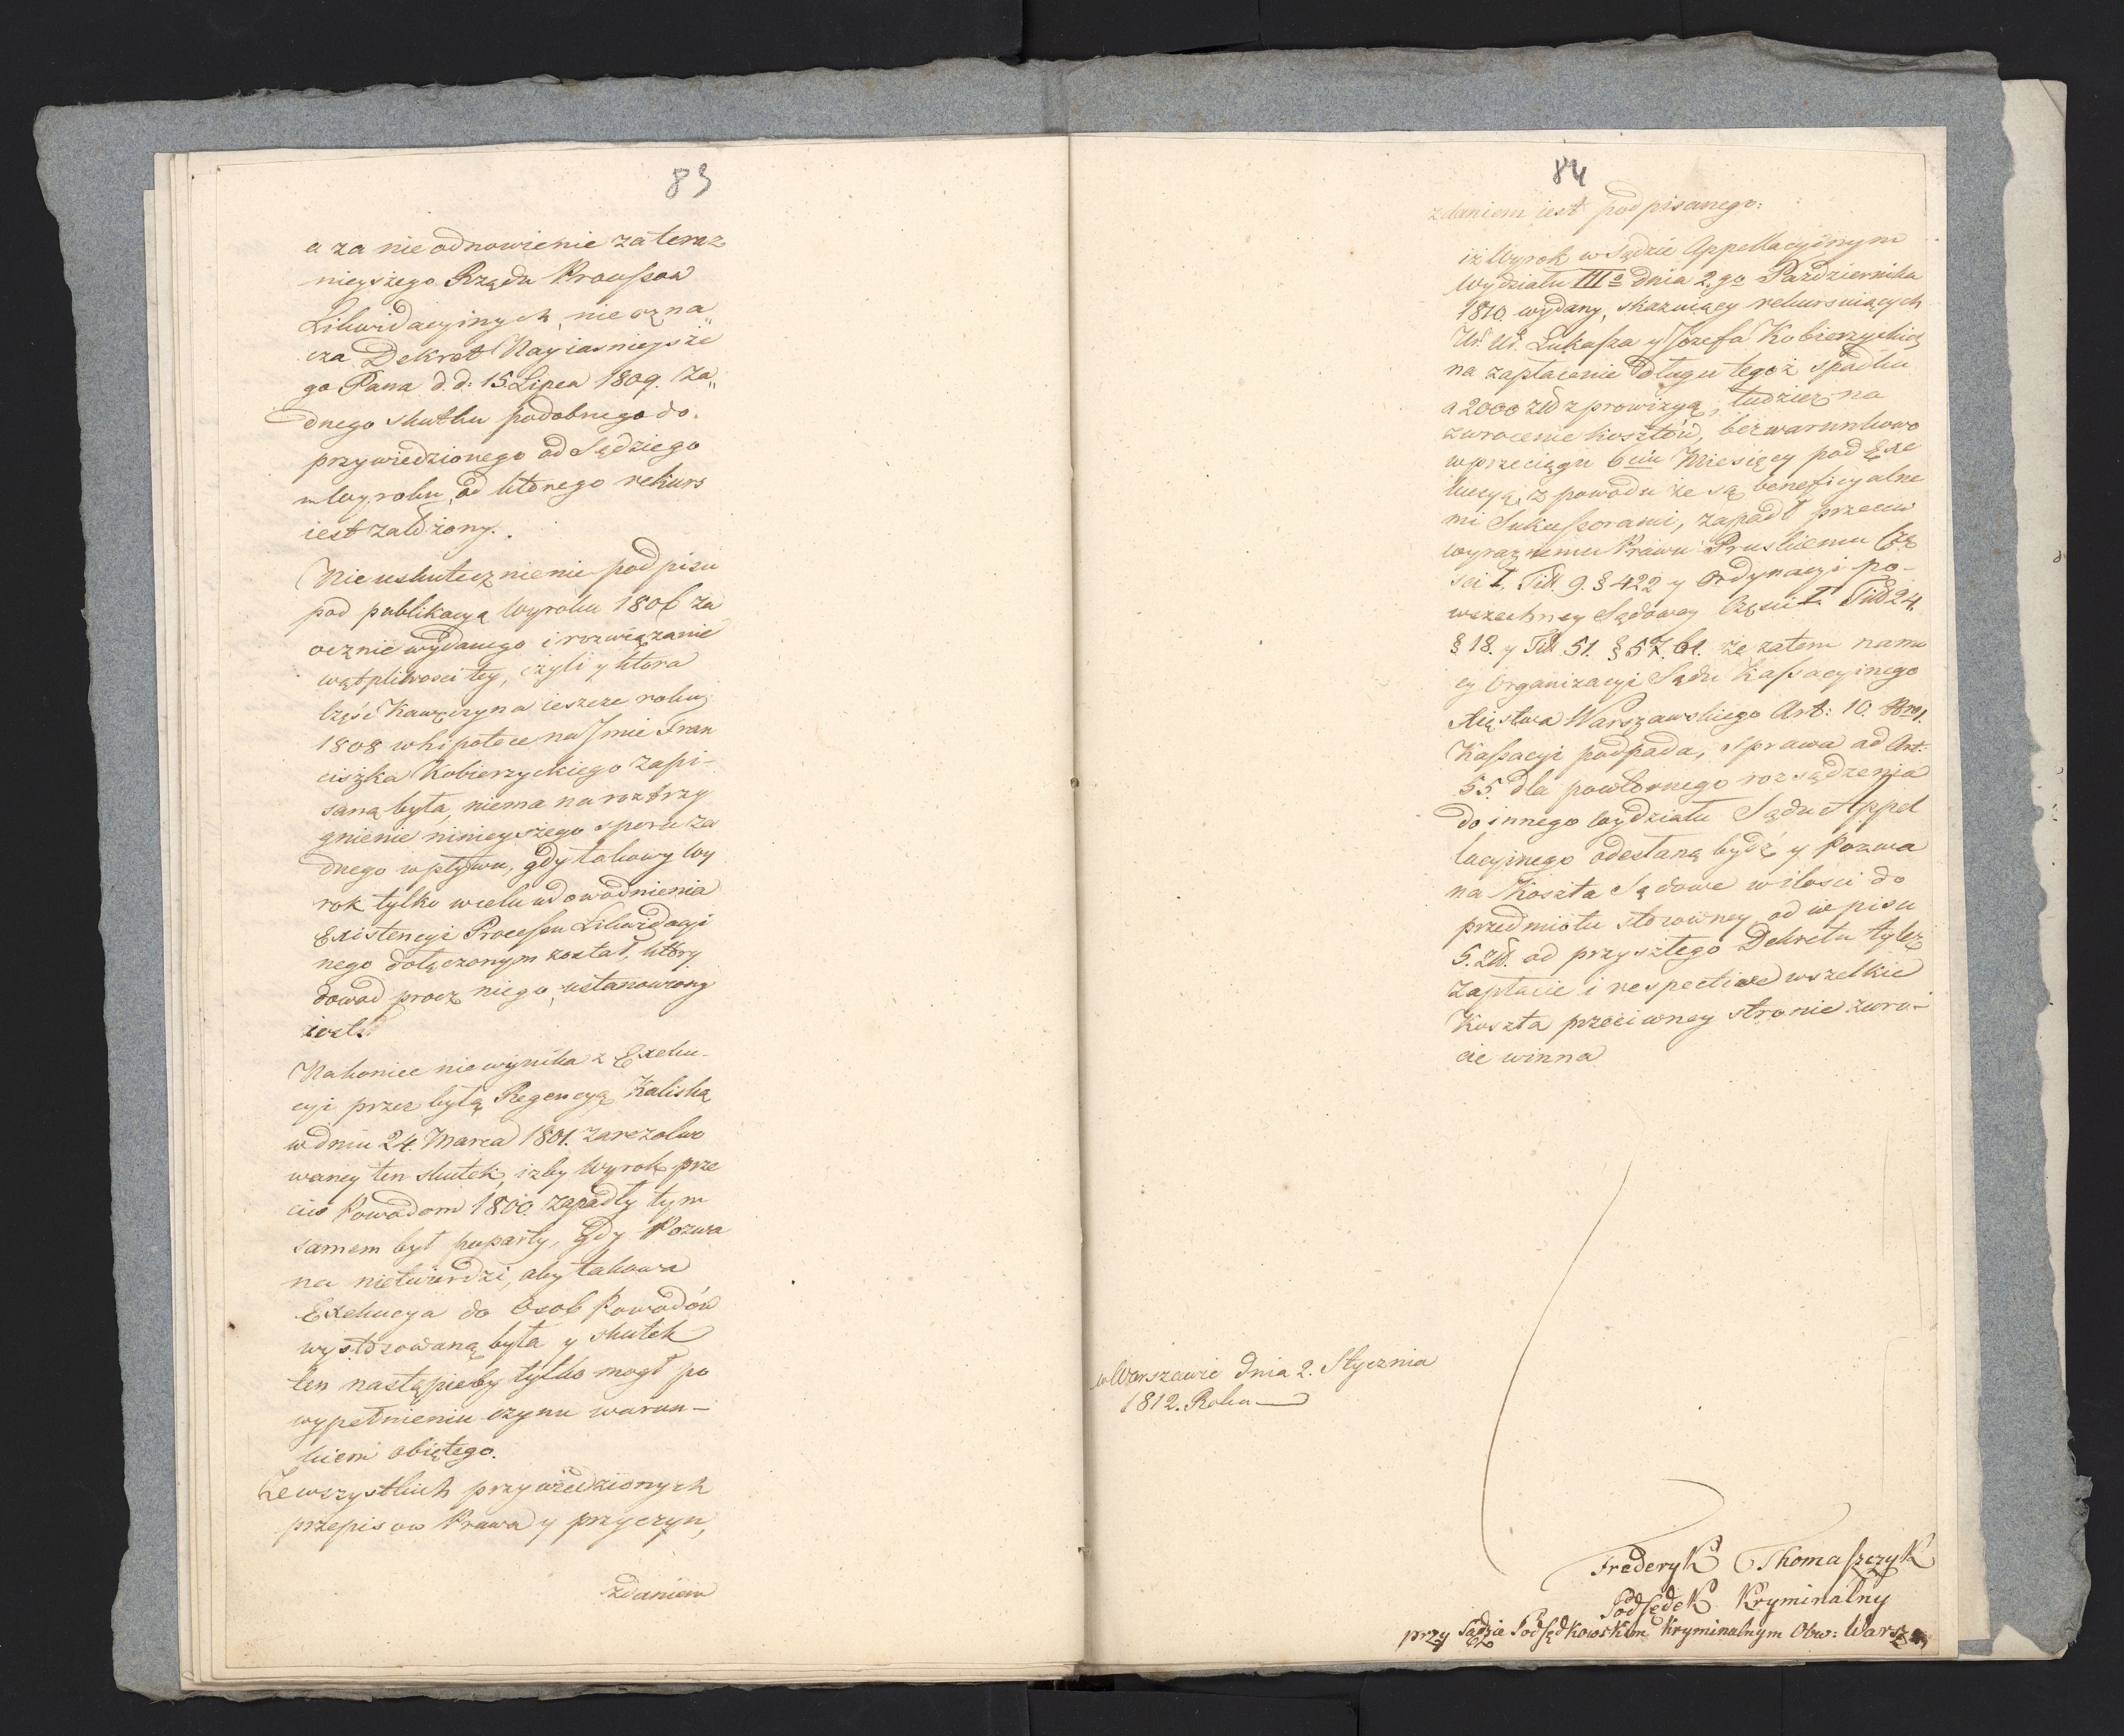 83
a za nie odnowienie za teraz
nieyszego Rządu Processow
Likwidacyinych, nie ozna„
cza Dekret Nayiasnieysze
go Pana d. d: 15 Lipca 1809. Ża„
dnego skutku podobnego do
przywiedzionego od Sędziego
w Wyroku, od ktorego rekurs
iest założony.
Nie uskutecznienie podpisu
pod publikacyą Wyroku 1806 za
ocznie wydanego i rozwiązanie
wątpliwosci tey, czyli y ktora
Część Kawęczyna ieszcze roku
1808 w hipotece na Jmie Fran
ciszka Kobierzyckiego zapi-
saną była, niema na roztrzy
gnienie ninieyszego sporu ża
dnego wpływu, gdy takowy Wy
rok tylko w celu udowodnienia
Existencyi Processu Likwidacyi
nego dołączonym został, który
dowod procz niego, ustanowiony
iest.
Nakoniec nie wynika z Exeku-
cyi przez byłą Regencyą Kaliską
w dniu 24. Marca 1801. zarezolwo
waney ten skutek, izby Wyrok prze
ciw Powodom 1800. zapadły tym
samem był poparty, gdy Pozwa
na nietwierdzi, aby takowa
Exekucya do Osob Powodów
wystosowaną była y skutek
ten nastąpićby tylko mogł po
wypełnieniu czynu warun-
kiem obiętego.
Ze wszystkich przywiedzionych
przepisow Prawa y przyczyn,
zdaniem
84
zdaniem iest podpisanego:
iż Wyrok w Sądzie Appellacyinym
Wydziału III<u>o</u> dnia 2.go Pazdziernika
1810. wydany, skazuiący rekursuiących
Ur. Ur. Łukasza y Jozefa Kobierzyckich
na zapłacenie długu tegoż spadku
a 2000 złł z prowizyą, tudzież na
zwrocenie kosztów, bezwarunkowo
w przeciągu 6ciu Miesięcy pod Exe
kucyą, z powodu że są beneficyalne
mi Sukcessorami, zapadł przeciw
wyraznemu Prawu Pruskiemu Czę
sci I. Titt. 9. § 422 y Ordynacyi po-
wszechney Sądowey Części I Titt 24.
§ 18. y Titt. 51. § 57. 61. że zatem na mo
cy Organizacyi Sądu Kassacyinego
Xięstwa Warszawskiego Art: 10. Nro 1.
Kassacyi podpada, sprawa ad Art:
55. dla powtornego rozsądzenia
do innego Wydziału Sądu Appel
lacyinego odesłaną bydź y Pozwa
na Koszta Sądowe w ilosci do
przedmiotu stosowney, od wpisu
5. Złł. od przyszłego Dekretu tyleż
zapłacić i respective wszelkie
Koszta przeciwney stronie zwro-
cić winna
w Warszawie dnia 2. Stycznia
1812. Roku
Frederyk Thomaszczyk
Podsędek Kryminalny
przy Sądzie Podsędkowskim Kryminalnym Obw: Warsz: